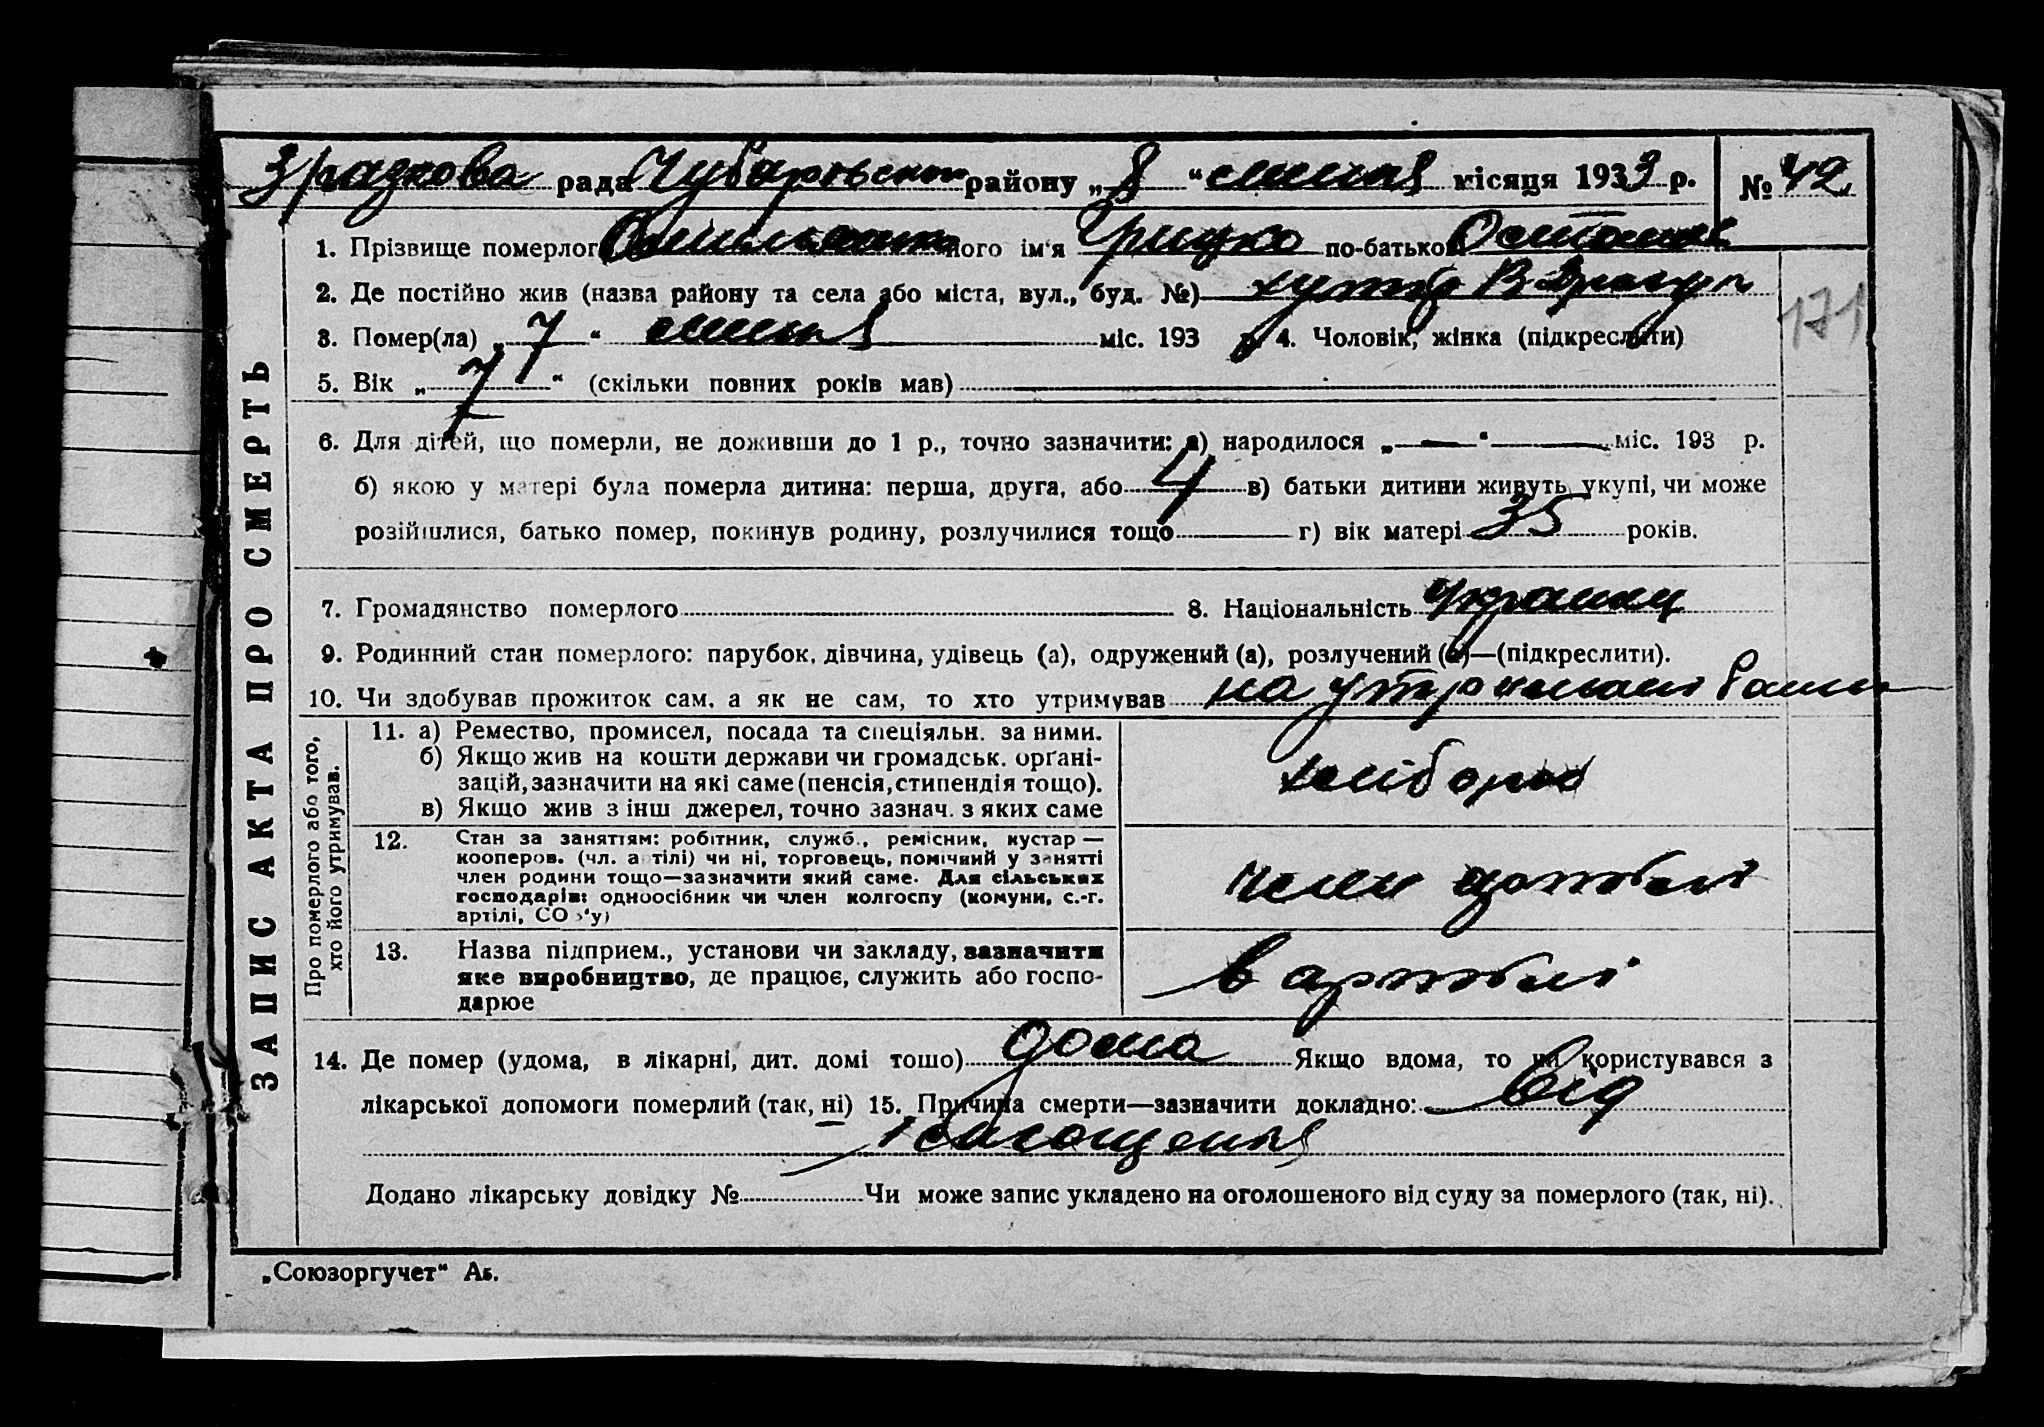 Зразкова рада Чубарівського району „8“ липня місяця 1933 р. № 42
1. Прізвище померлог його ім'я Грицко по-батькові
2. Де постійно жив (назва району та села або міста, вул., буд. №) хутір
3. Помер(ла) „7“ липня міс. 193 р. 4. Чоловік, жінка (підкреслити)
171
5. Вік „7“ (скільки повних років мав)
6. Для дітей, що померли, не доживши до 1 р., точно зазначити: а) народилося „—“ — міс. 193 р.
б) якою у матері була померла дитина: перша, друга, або 4 в) батьки дитини живуть укупі, чи може
розійшлися, батько помер, покинув родину, розлучилися тощо г) вік матері 35 років.
7. Громадянство померлого 8. Національність українец
9. Родинний стан померлого: парубок, дівчина, удівець (а), одружений (а), розлучений (а)—(підкреслити).
10. Чи здобував прожиток сам, а як не сам, то хто утримував на
ЗАПИС АКТА ПРО СМЕРТЬ
Про померлого або того,
хто його утримував.
11. а) Ремество, промисел, посада та спеціяльн. за ними.
б) Якщо жив на кошти держави чи громадськ. орґані-
зацій, зазначити на які саме (пенсія, стипендія тощо).
в) Якщо жив з інш джерел, точно зазнач. з яких саме
хлібороб
12. Стан за заняттям: робітник, служб., ремісник, кустар —
кооперов. (чл. артілі) чи ні, торговець, помічний у занятті
член родини тощо—зазначити який саме. Для сільських
господарів: одноосібник чи член колгоспу (комуни, с.-г.
артілі, СО з'у)
член артілі
13. Назва підприєм., установи чи закладу, зазначити
яке виробництво, де працює, служить або госпо-
дарює
в артілі
14. Де помер (удома, в лікарні, дит. домі тощо) дома Якщо вдома, то чи користувався з
лікарської допомоги померлий (так, ні) 15. Причина смерти—зазначити докладно: від
істощения
Додано лікарську довідку № Чи може запис укладено на оголошеного від суду за померлого (так, ні).
„Союзоргучет“ Аз.